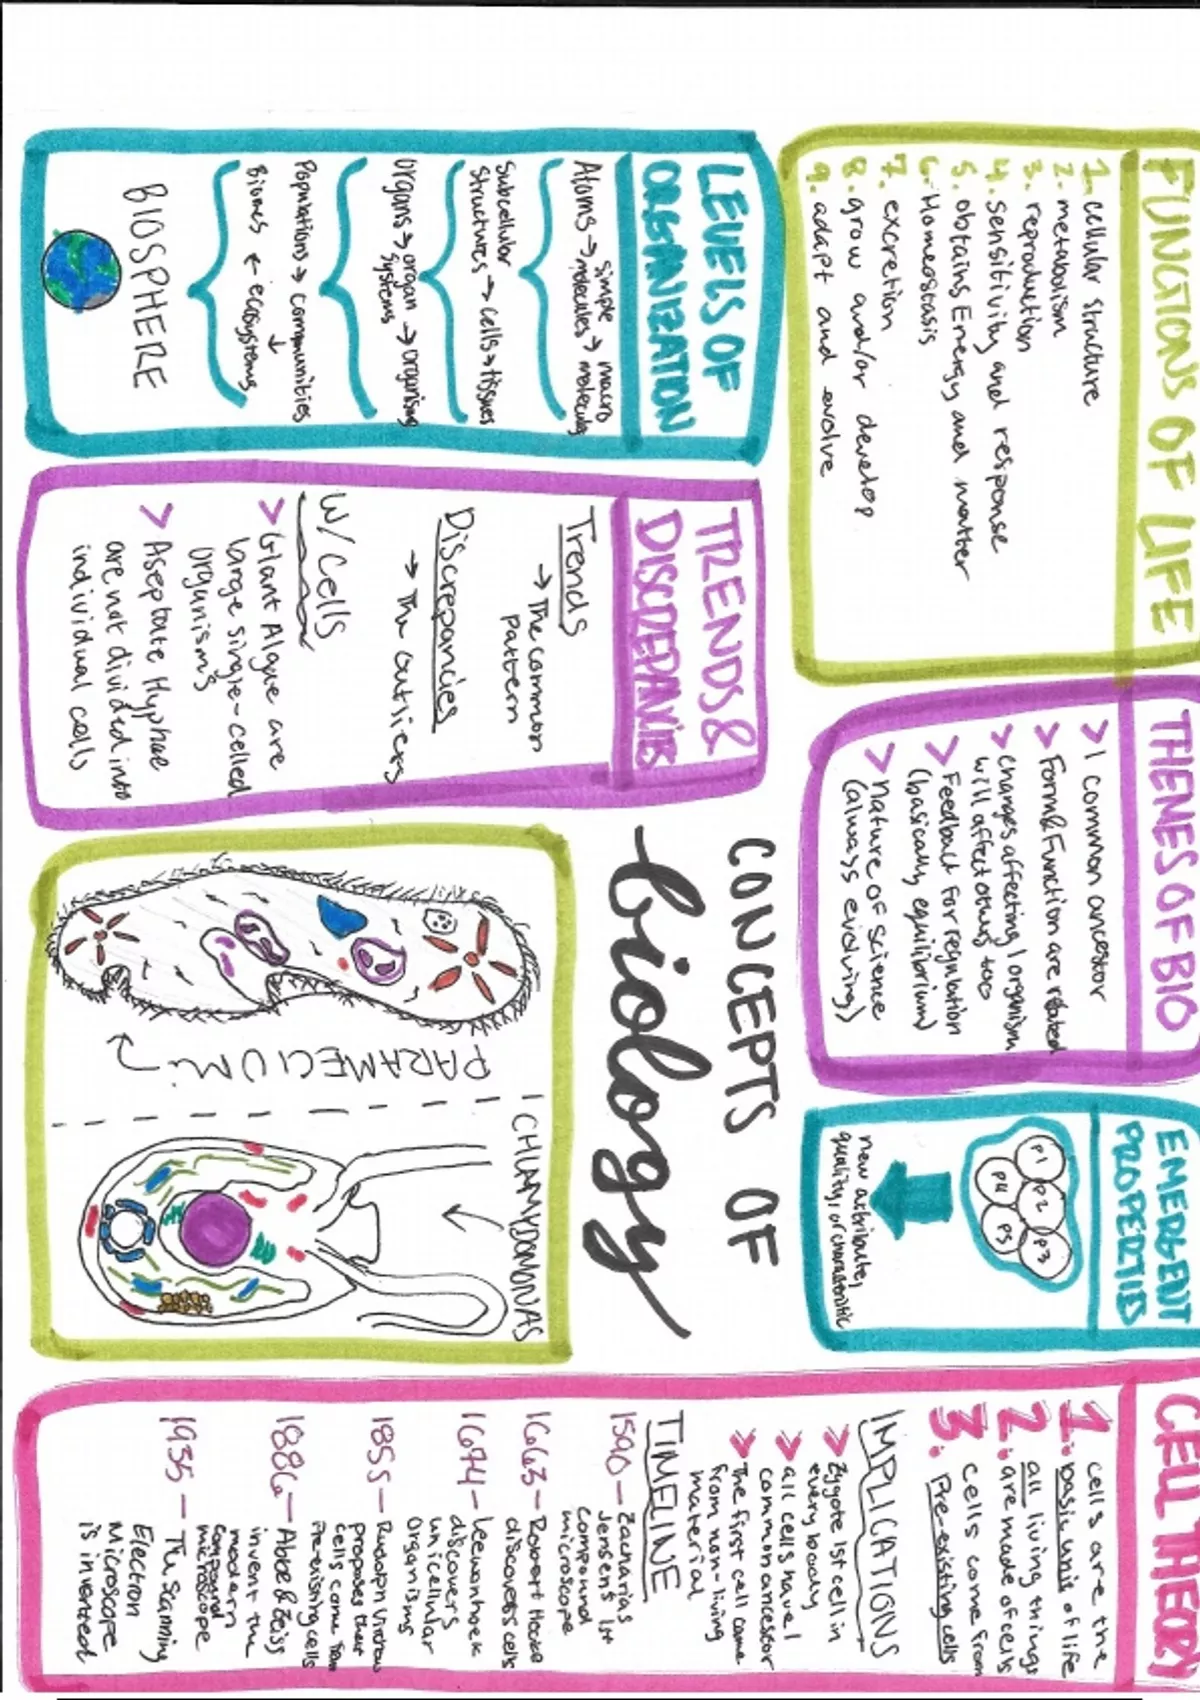 FUNCTIONS OF LIFE
1. cellular structure
2. metabolism
3. reproduction
4. sensitivity and response
5. obtains Energy and matter
6. Homeostasis
7. excretion
8. grow and/or develop
9. adapt and evolve
THEMES OF BIO
> 1 common ancestor
> Form & Function are related
> changes affecting 1 organism
will affect others too
> Feedback for regulation
(basically equilibrium)
> Nature of Science
(always evolving)
EMERGENT
PROPERTIES
P1
P2
P3
P4
P5
new attribute,
quality, or characteristic
CELL THEORY
1. cells are the
basic unit of life
2. all living things
are made of cells
3. cells come from
Pre-existing cells
IMPLICATIONS
> Zygote 1st cell in
every body
> all cells have 1
common ancestor
> The first cell came
from non-living
material
TIMELINE
1590 – Zacharias
Jensen's 1st
compound
microscope
1663 – Robert Hooke
discovers cells
1674 – Leewenhoek
discovers
unicellular
organisms
1855 – Rudolph Virchow
proposes that
cells come from
Pre-existing cells
1886 – Abbe & Zeiss
invent the
modern
compound
microscope
1935 – The scanning
Electron
Microscope
is invented
LEVELS OF
ORGANIZATION
Atoms → simple molecules → macro molecules
Subcellular
Structures → cells → tissues
organs → organ systems → organism
Populations → communities
↓
Biomes ← ecosystems
BIOSPHERE
TRENDS &
DISCREPANCIES
Trends
→ The common
pattern
Discrepancies
→ The outliers
W/ Cells
> Giant Algae are
large single-celled
organisms
> Aseptate Hyphae
are not divided into
individual cells
CONCEPTS OF
biology
PARAMECIUM
CHLAMYDOMONAS